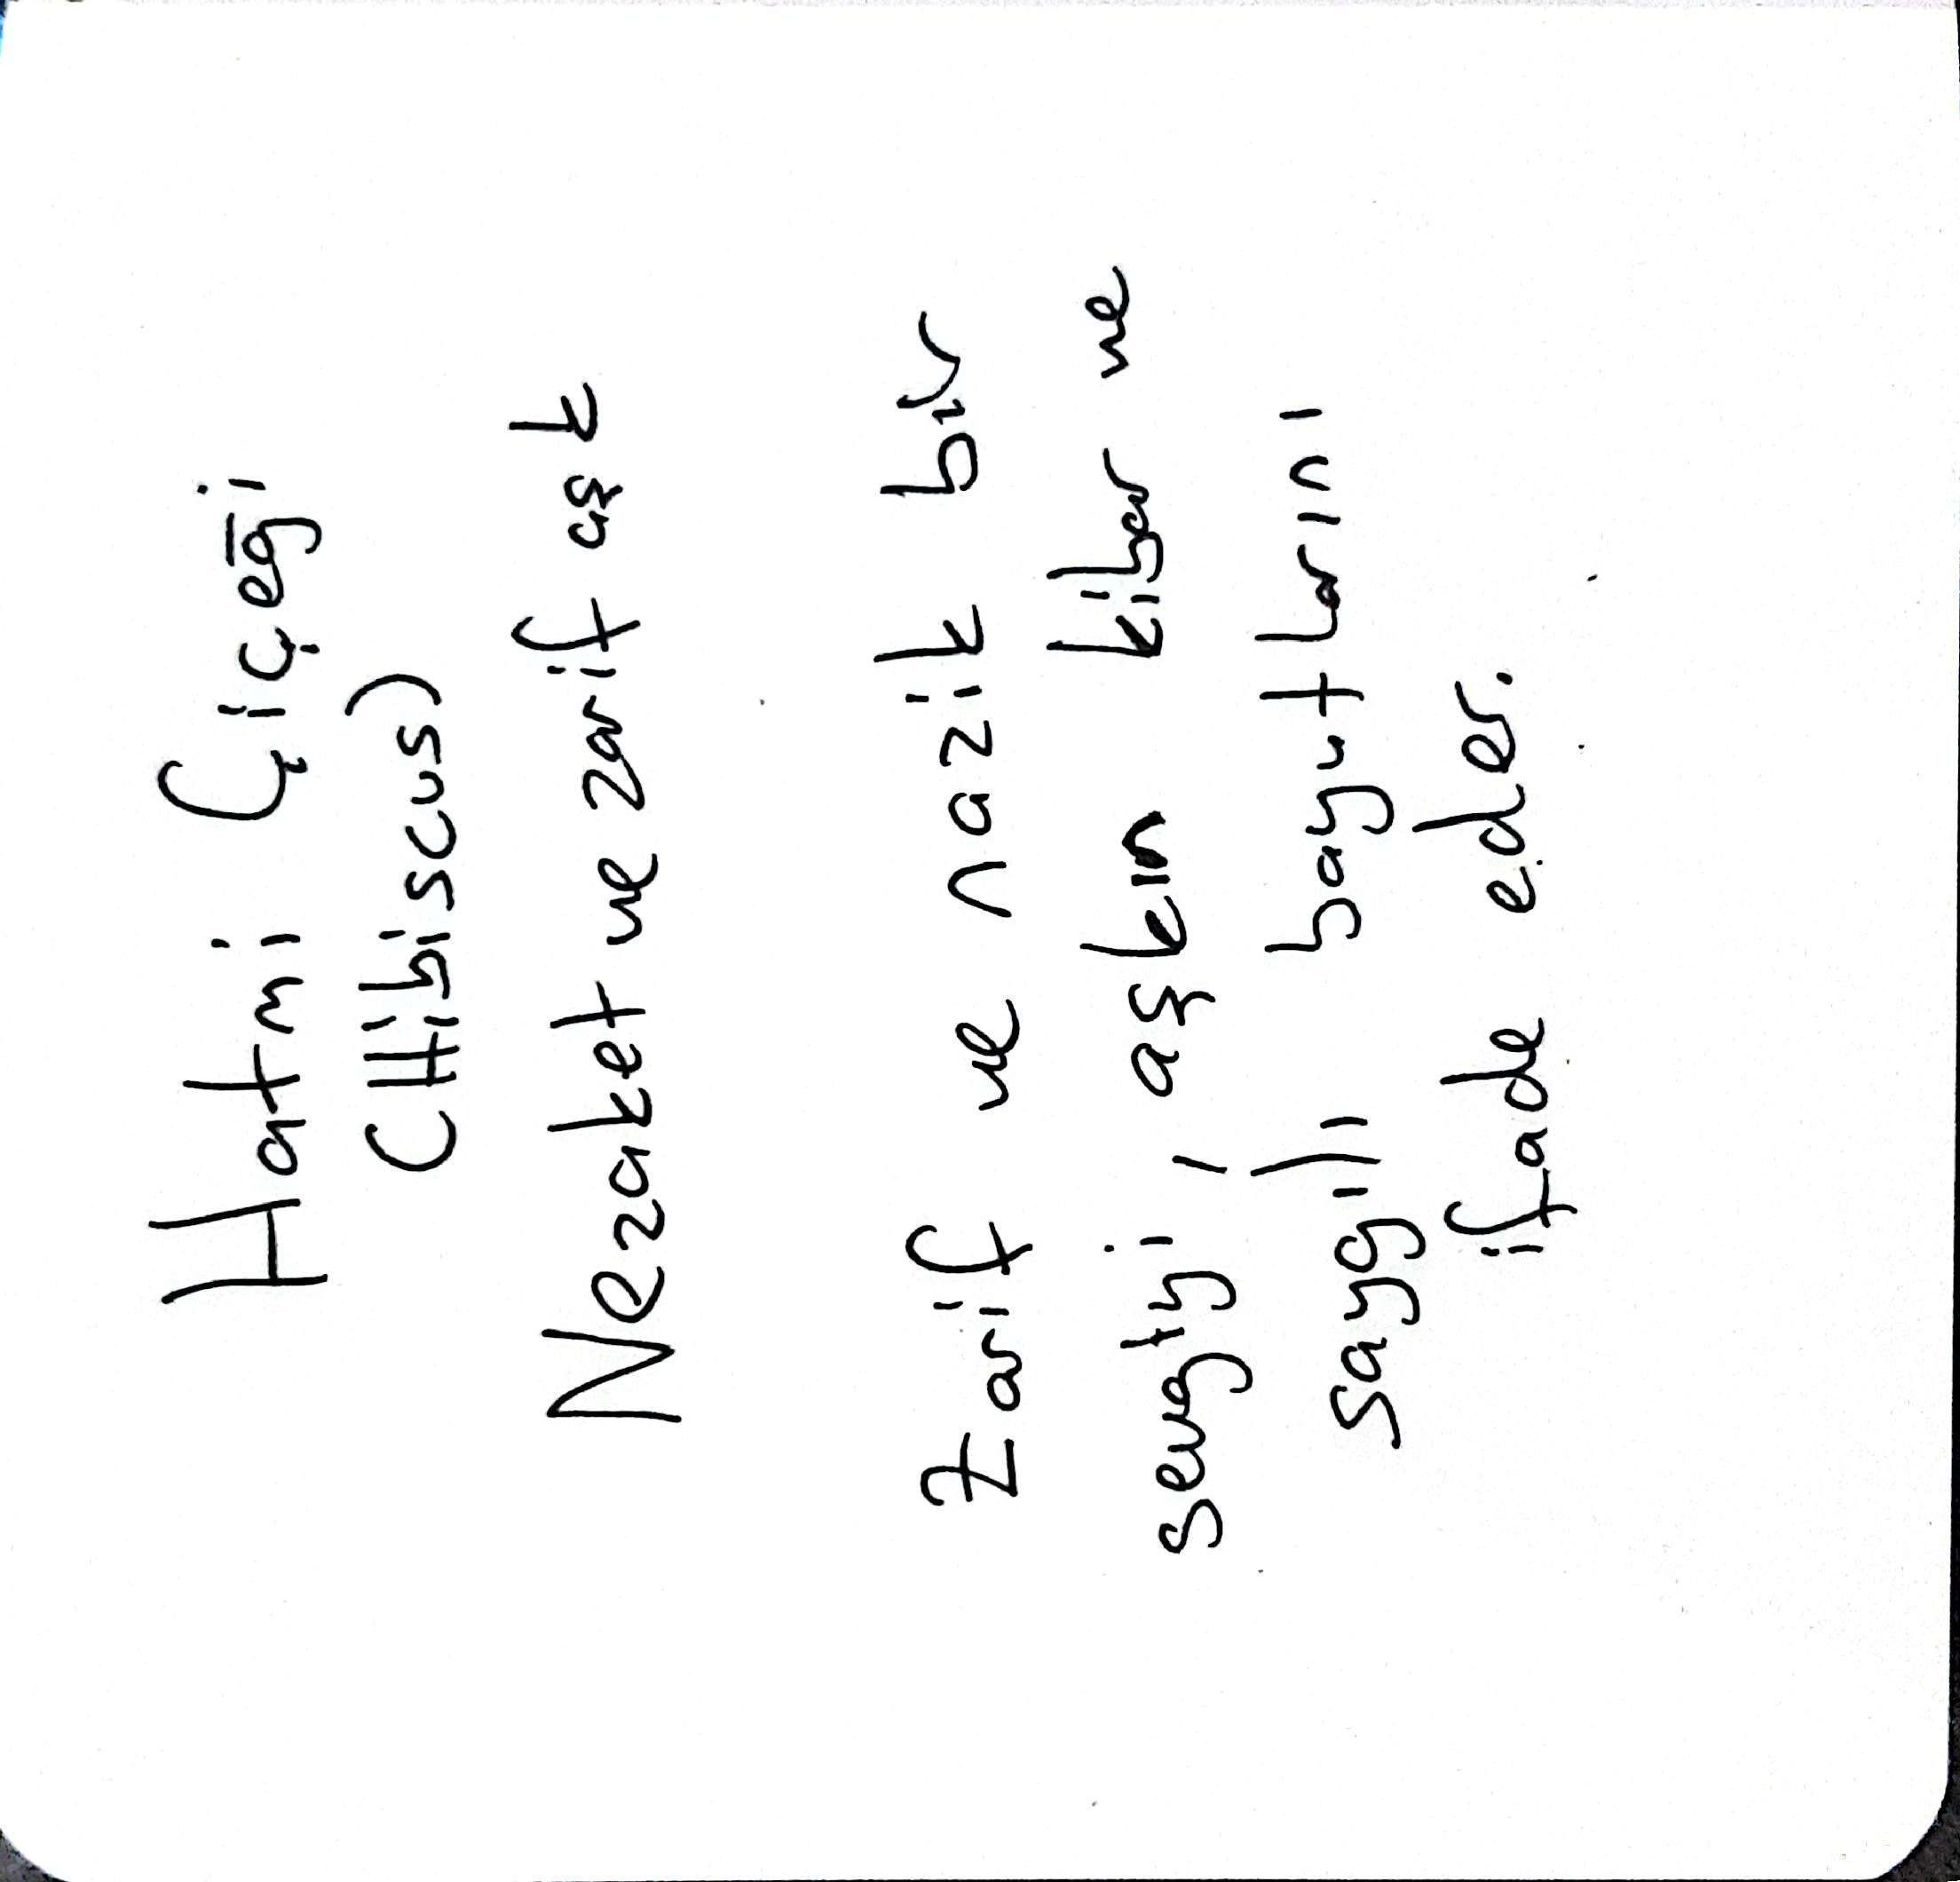 Hatmi Çiçeği
(Hibiscus)
Nezaket ve zarif aşk
Zarif ve nazik bir
sevgiyi, aşkın kibar ve
saygılı boyutlarını
ifade eder.